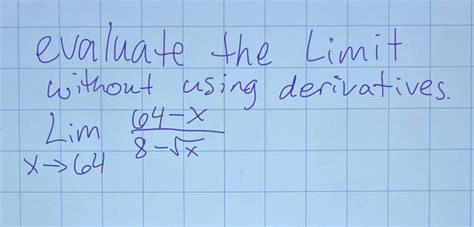 evaluate the Limit
without using derivatives.
Lim 64-x
x→64 8-√x